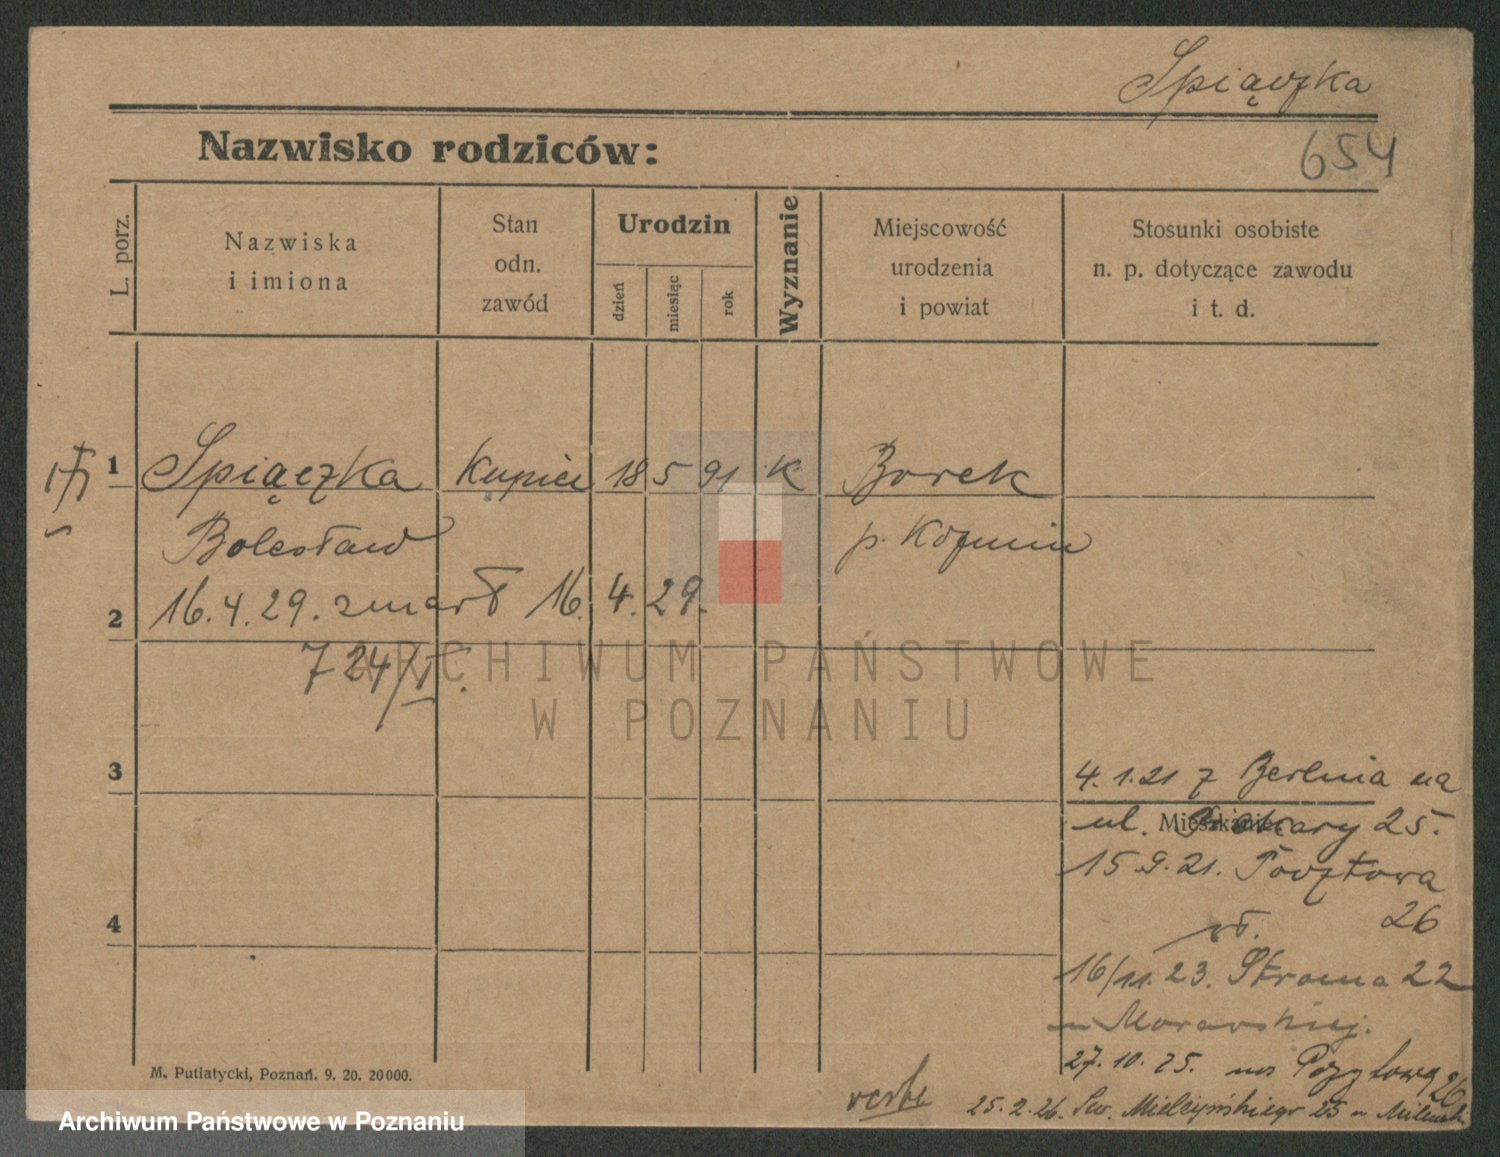 Spiączka
Nazwisko rodziców:
654
L. porz.
Nazwiska
i imiona
Stan
odn.
zawód
Urodzin
dzień
miesiąc
rok
Wyznanie
Miejscowość
urodzenia
i powiat
Stosunki osobiste
n. p. dotyczące zawodu
i t. d.
1 Spiączka Kupiec 18 5 91 K Borek
Bolesław p. Koźmin
2 16.4.29. zmarł 16. 4. 29.
724/II.
ARCHIWUM PAŃSTWOWE
W POZNANIU
3
4.1.21 z Berlina na
Mieszkanie:
ul. 25.
15.9.21. Pocztowa
26
4
16/11. 23. Stroma 22
u Morawskiej.
27. 10. 25. na Pocztową 26
verte
25. 2. 26. Sew. Mielżyńskiego 25 u
M. Putiatycki, Poznań. 9. 20. 20000.
Archiwum Państwowe w Poznaniu